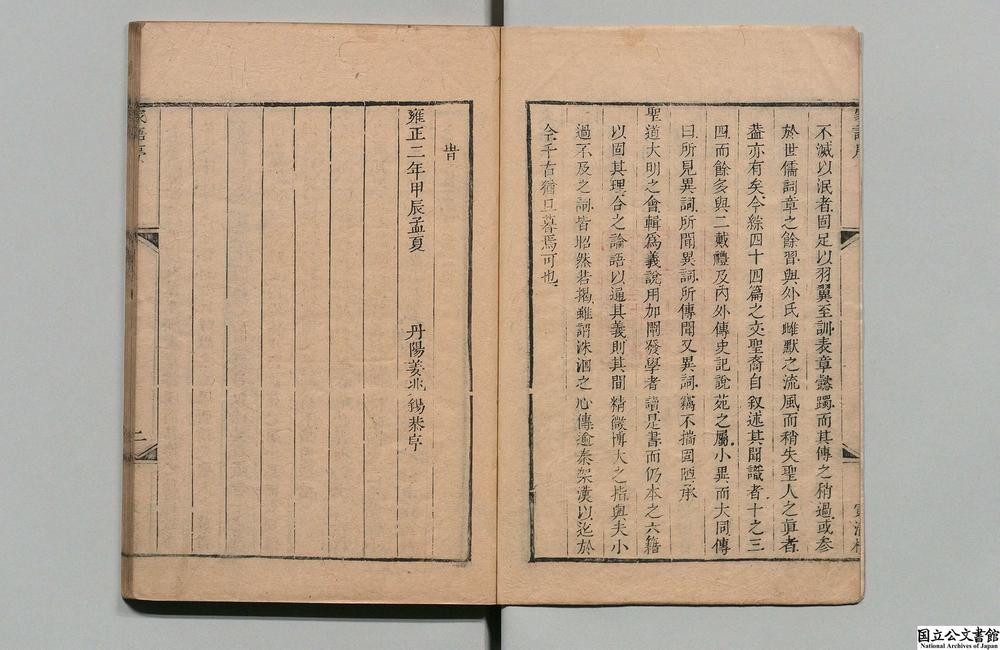 不滅以泯者固足以羽翼至訓表章懿躅而其傳之稍過或參
於世儒詞章之餘習與外氏雌默之流風而稍失聖人之眞者
葢亦有矣今綜四十四篇之文聖裔自叙述其聞識者十之三
四而餘多與二戴禮及內外傳史記說苑之屬小異而大同傳
曰所見異詞所聞異詞所傳聞又異詞竊不揣固陋承
聖道大明之會輯爲義說用加闡發學者讀是書而仍本之六籍
以固其理合之論語以通其義則其間精微博大之指與夫小
過不及之詞皆昭然若揭雖謂洙泗之心傳逾秦架漢以迄於
今千古猶旦暮焉可也
旹
雍正二年甲辰孟夏
丹陽姜兆錫恭序
家語序
二
国立公文書館
National Archives of Japan